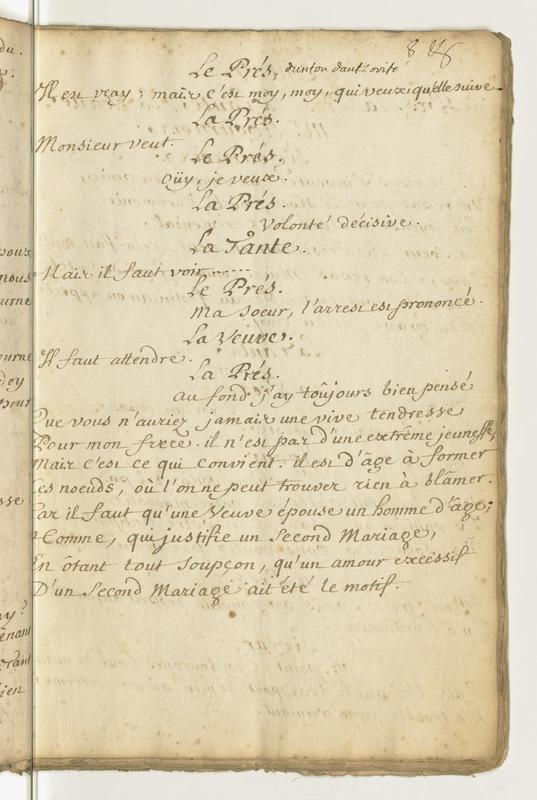 8 86
Le Prés. d'un ton d'autorité
Il est vray; mais c'est moy, moy, qui veux qu'elle suive.
La Prés.
Monsieur veut.
Le Prés.
Oüy, je veux.
La Prés.
Volonté décisive.
La Tante.
Mais il faut voir......
Le Prés.
Ma Soeur, l'arrest est prononcé.
La Veuve.
Il faut attendre.
La Prés.
au fond j'ay toûjours bien pensé
Que vous n'auriez jamais une vive tendresse
Pour mon frere. il n'est pas d'une extrême jeunesse,
Mais c'est ce qui convient. il est d'âge à former
Les noeuds, où l'on ne peut trouver rien à blâmer.
Car il faut qu'une Veuve épouse un homme d'âge;
Homme, qui justifie un Second Mariage,
En ôtant tout soupçon, qu'un amour excessif
D'un Second Mariage ait été le motif.